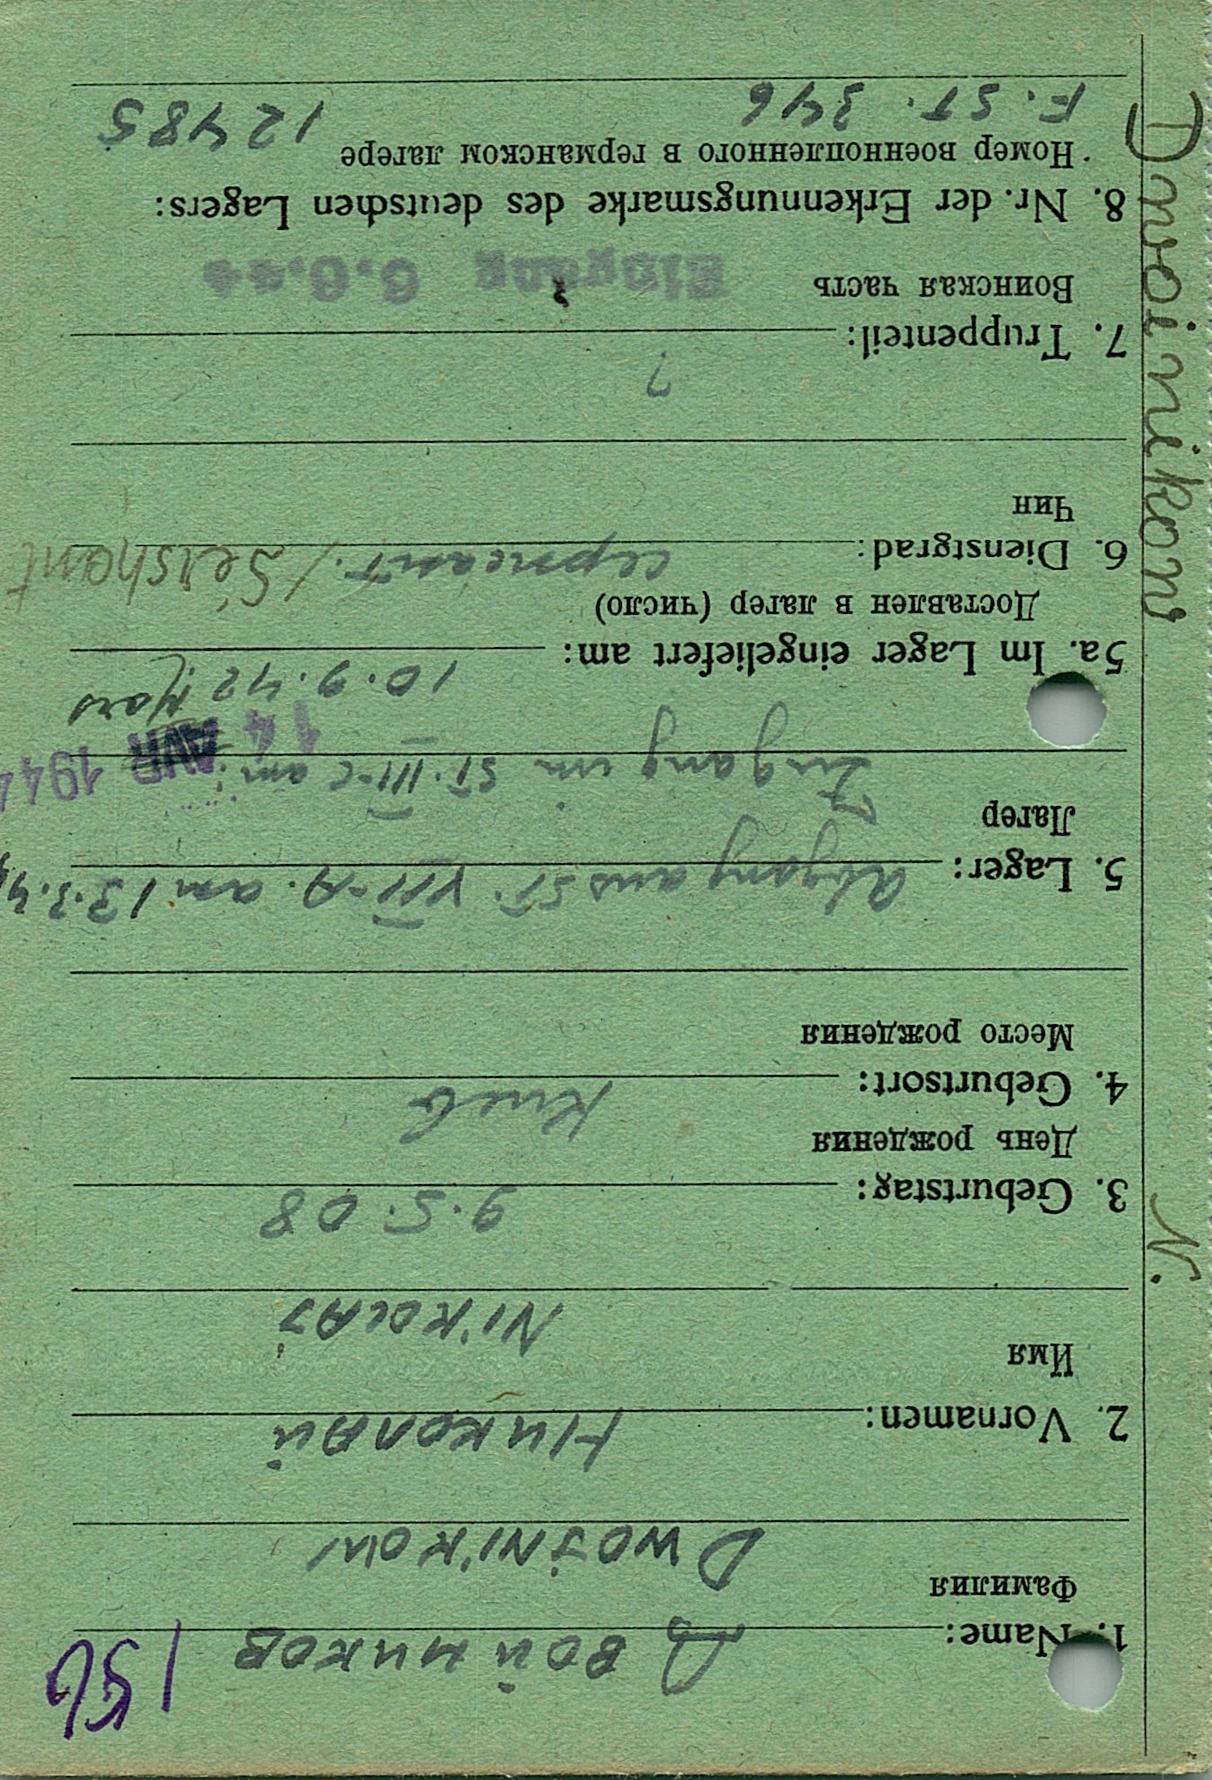 156
1. Name: Двойников
Фамилия
DWOJNIKOW
2. Vornamen: Николай
Имя
NIKOLAJ
3. Geburtstag: 9.5.08
День рождения
4. Geburtsort: Киев
Место рождения
5. Lager: Abgang aus ST. VII-A. am 13.3.4
Лагер
Zugang im ST. III-C am:
14 AVR 1944
5a. Im Lager eingeliefert am: 10.9.42
Доставлен в лагер (число)
6. Dienstgrad: сержант. / Sershant
Чин
?
7. Truppenteil:
Воинская часть
Eingang 6.6.44
8. Nr. der Erkennungsmarke des deutschen Lagers:
Номер военнопленного в германском лагере
F. ST. 346 12485
Dwoinikow N.